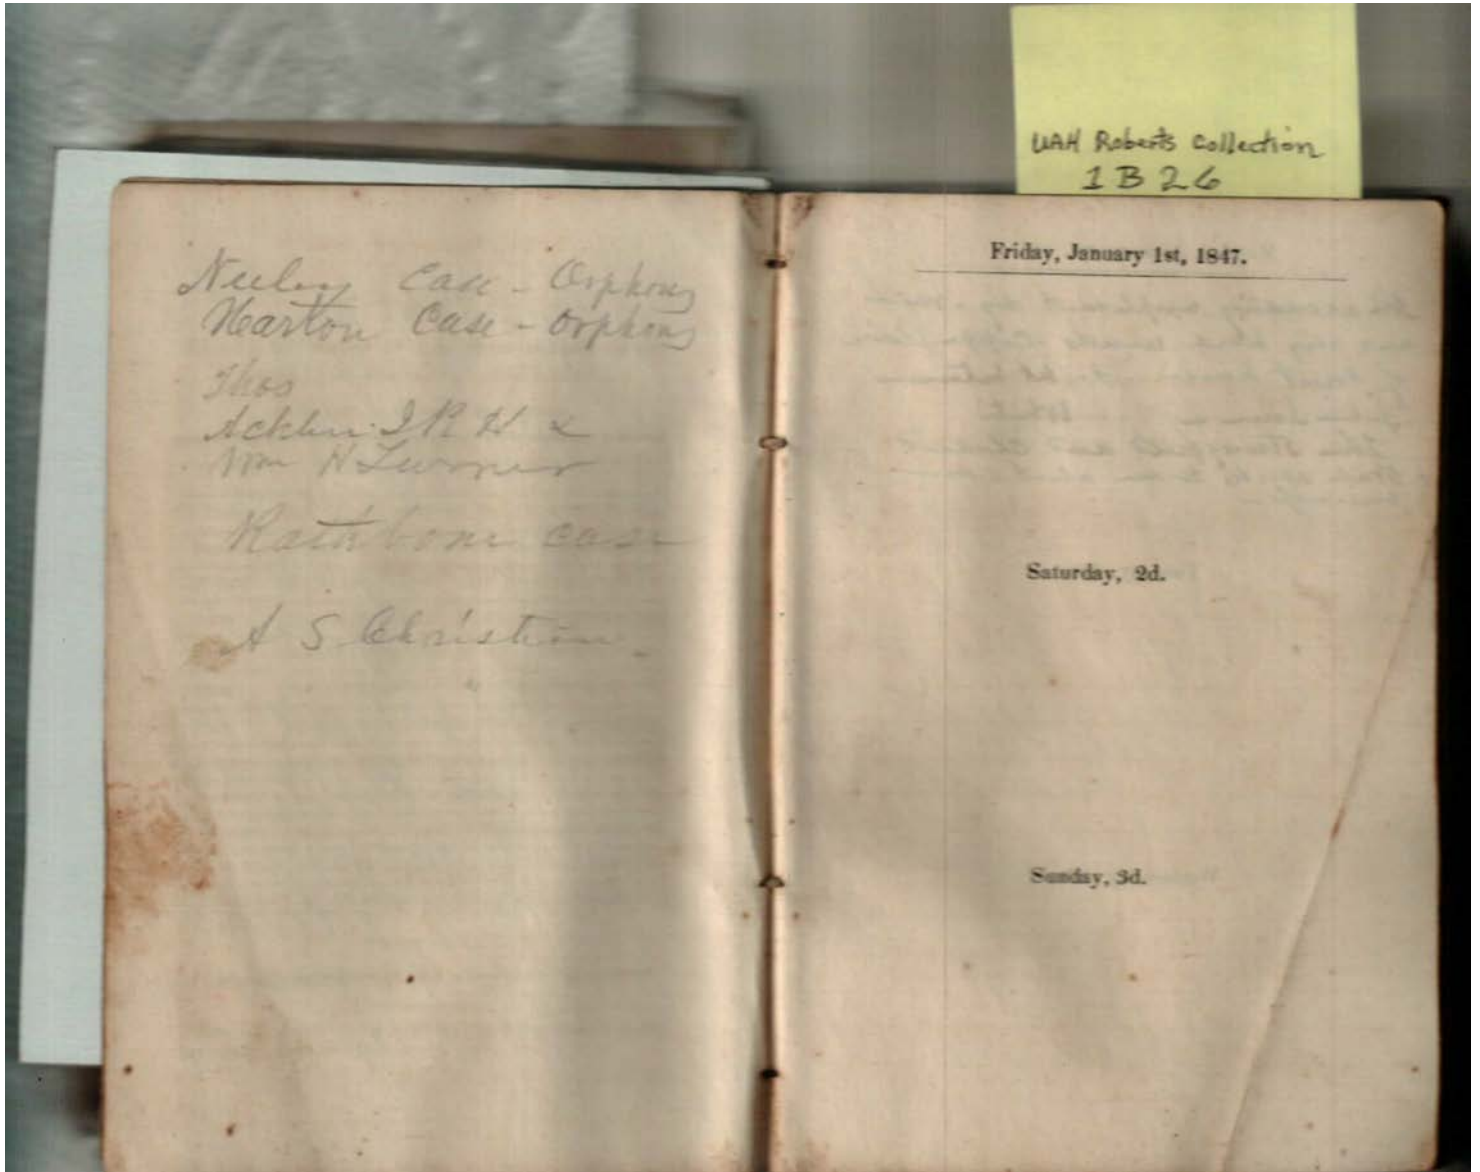 UAH Roberts Collection
1B26
Neeley Case - Orphans
Harton Case - Orphans
Thos
Acklin J R H &
Wm H Turner
Rathbone case
A S Christian
Friday, January 1st, 1847.
Saturday, 2d.
Sunday, 3d.